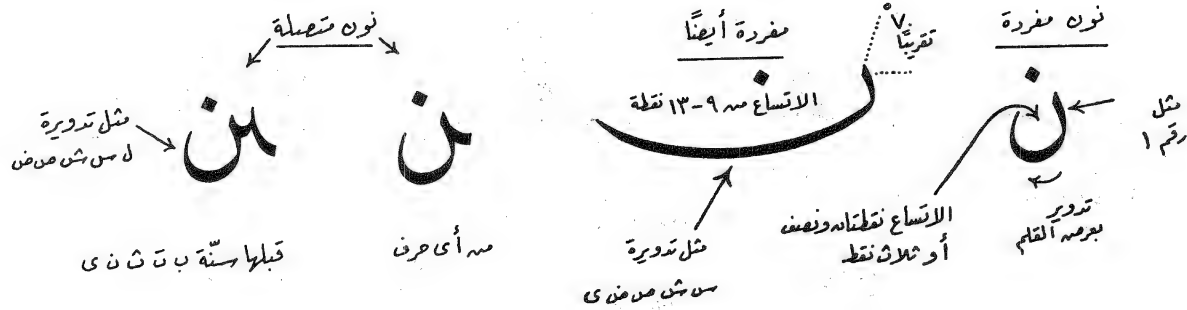 نون مفردة
ن
مثل
رقم ١
تدوير
بعرض القلم
الاتساع نقطتان ونصف
أو ثلاث نقط
مفردة أيضًا
٧٠°
تقريبًا
ن
الاتساع من ٩-١٣ نقطة
مثل تدويرة
س ش ص ض ى
نون متصلة
ـن
من أى حرف
ـنن
مثل تدويرة
ل س ش ص ض
قبلها سنّة ب ت ث ن ى